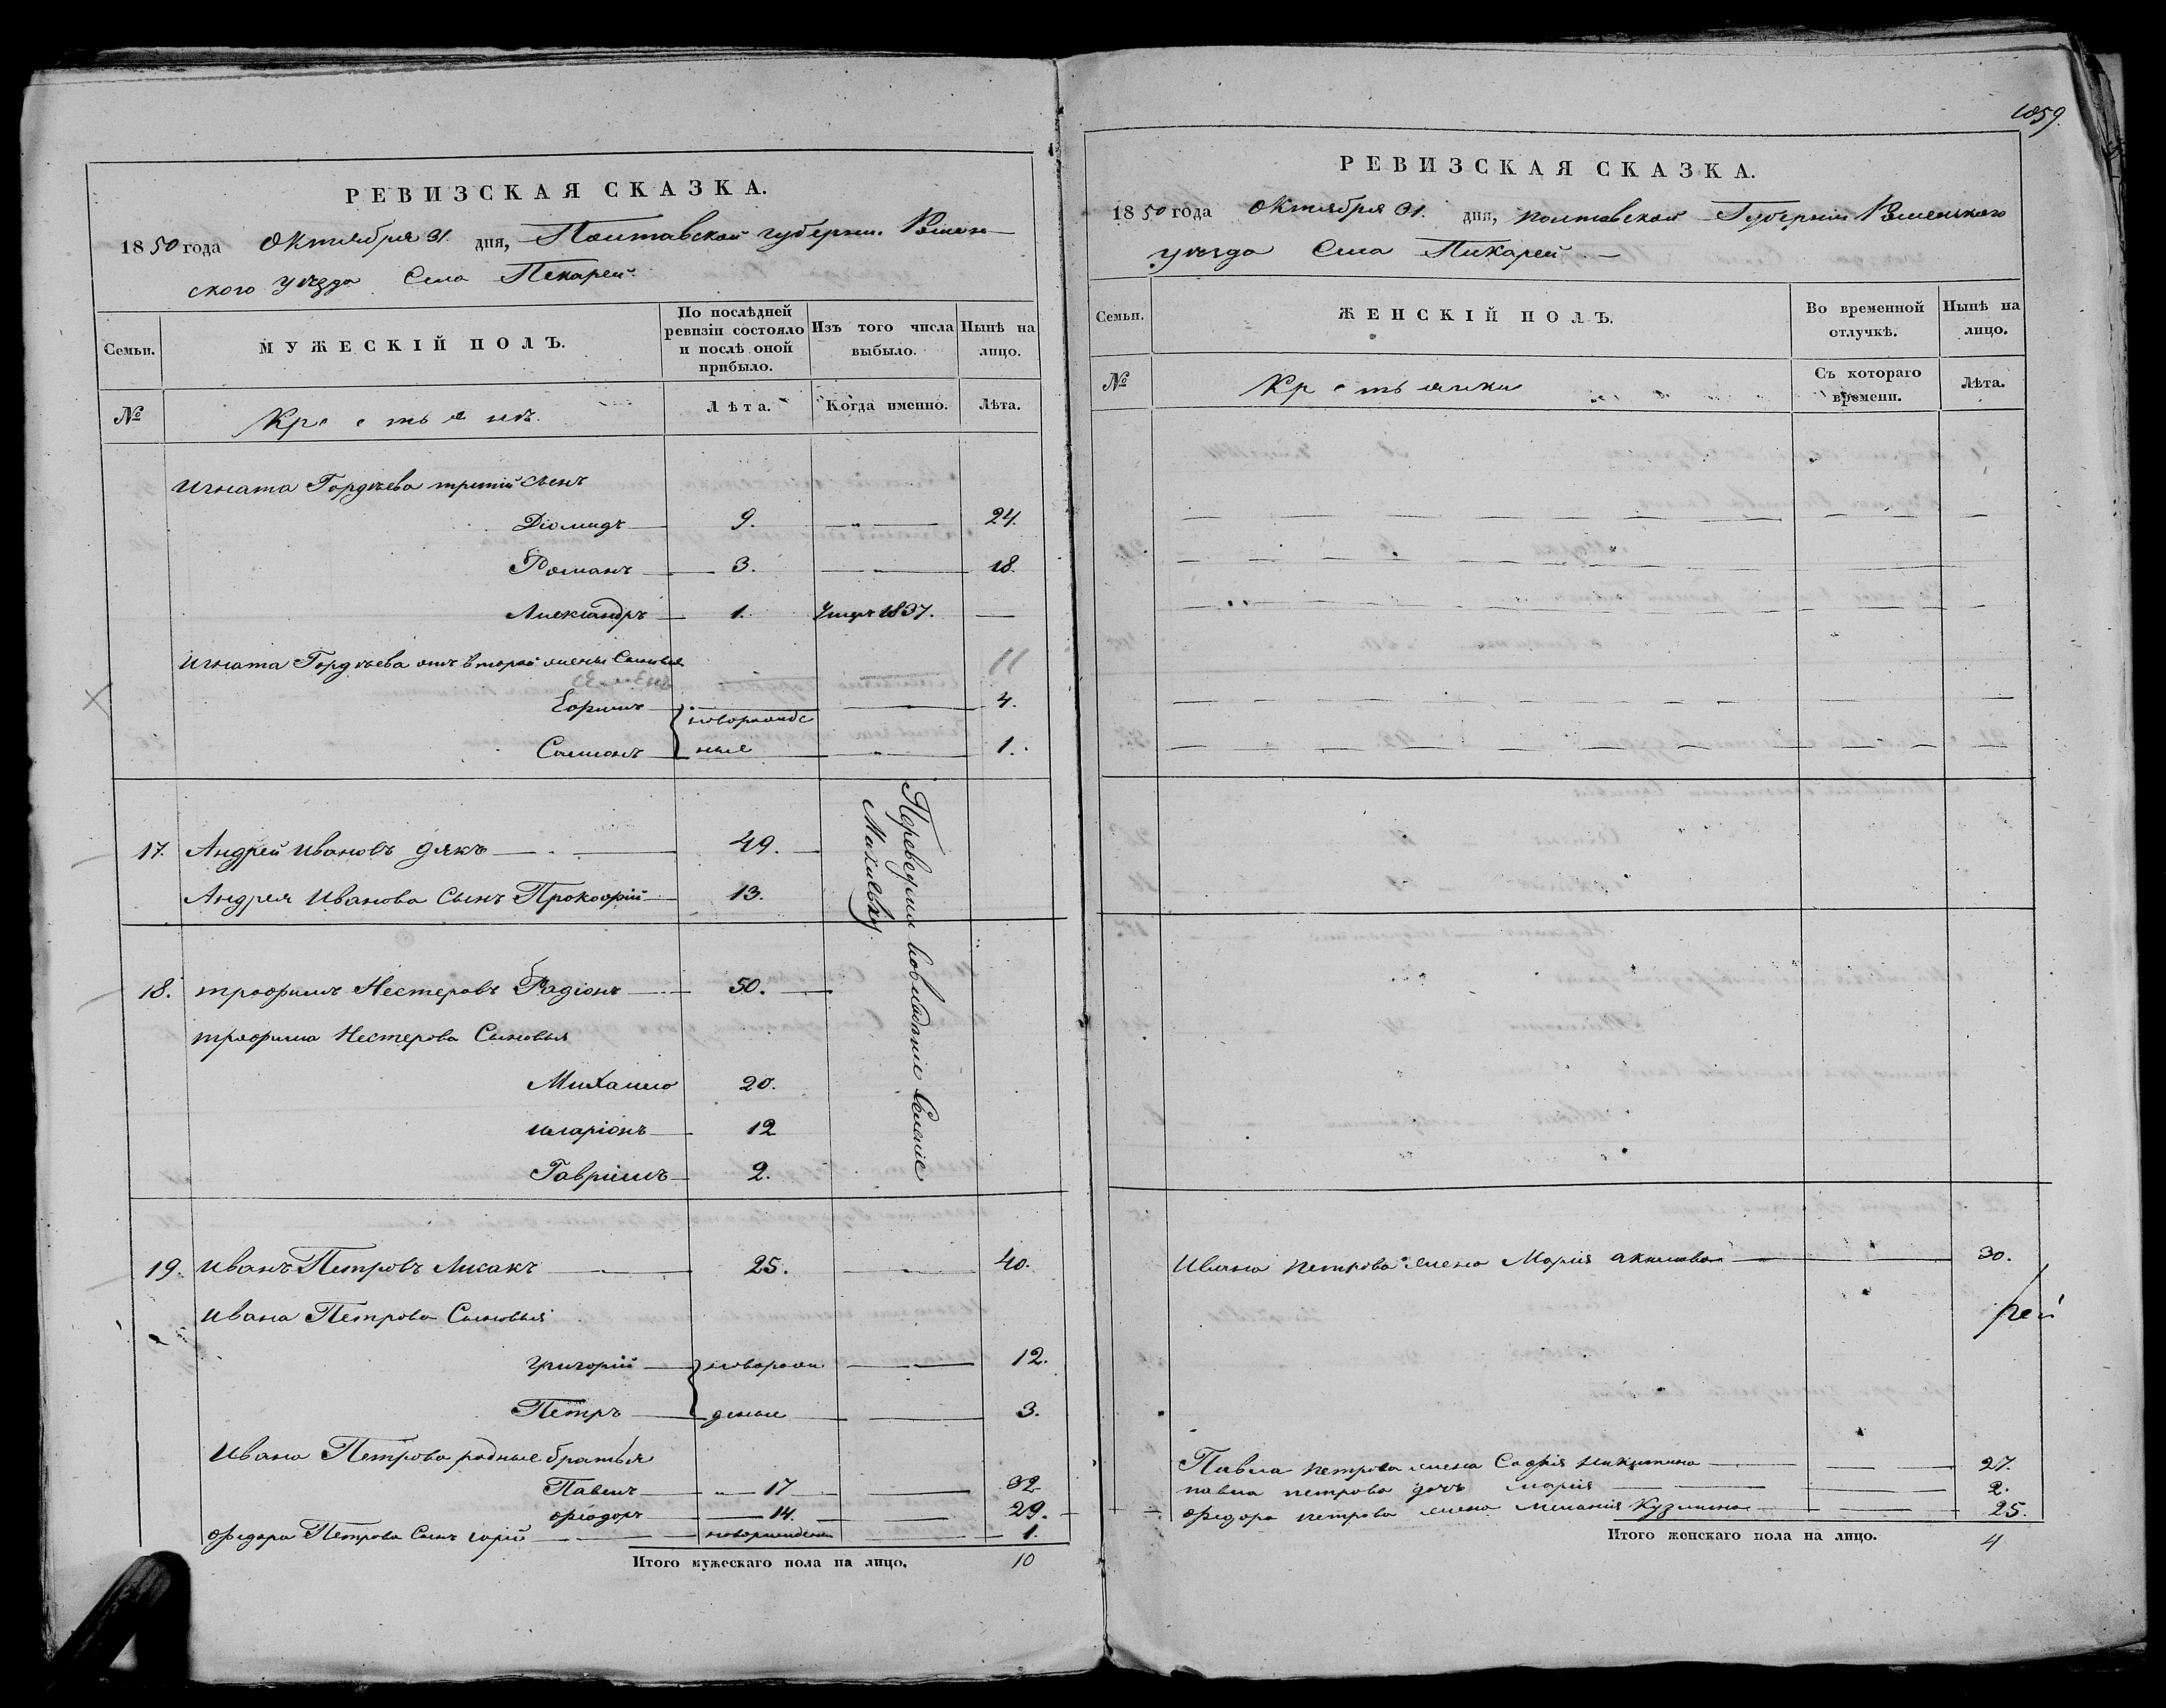 РЕВИЗСКАЯ СКАЗКА.
1850 года Октября 31. дня, Полтавской губерни. Ромен
ского уѣзда Села Пекарей
Семьи.
МУЖЕСКІЙ ПОЛЪ.
По послѣдней ревизіи состояло и послѣ оной прибыло.
Изъ того числа выбыло.
Нынѣ на лицо.
№
Крестьянъ.
Лѣта.
Когда именно.
Лѣта.
Игната Гордѣева третій Сынъ
Діомидъ 9. — 24.
Романъ 3. — 18.
Александръ 1. Умеръ 1837. —
Игната Гордѣева отъ второй жены Сыновья
11
Семенъ
новорожде 4.
ные 1.
17. Андрей Ивановъ Дякъ 49.
Андрея Иванова Сынъ Прокофій 13.
Переведены во владѣніе Селеніе
18. Трофимъ Нестеровъ Радіонъ 50.
Трофима Нестерова Сыновья
Михаило 20.
Иларіонъ 12
Гавріилъ 2.
19. Иванъ Петровъ Лисакъ 25. — 40.
Ивана Петрова Сыновья
Григорій новорож — 12.
Петръ деные — 3.
Ивана Петрова родные братья
Павелъ 17 — 32
Фіодоръ 14. — 29.
Федора Петрова Сынъ новорожденъ 1.
Итого мужескаго пола на лицо. 10
1859.
РЕВИЗСКАЯ СКАЗКА.
1850 года Октября 31. дня, Полтавской Губерніи Роменского
уѣзда Села Пикарей
Семьи.
ЖЕНСКІЙ ПОЛЪ.
Во временной отлучкѣ.
Нынѣ на лицо.
№
Крестьянки
Съ котораго времени.
Лѣта.
Ивана Петрова жена Марія 30.
рей
Павла Петрова жена Софія Никитина 27.
Павла Петрова дочь Марія 2.
Федора Петрова жена Меланія Кузмина 25.
Итого женскаго пола на лицо. 4